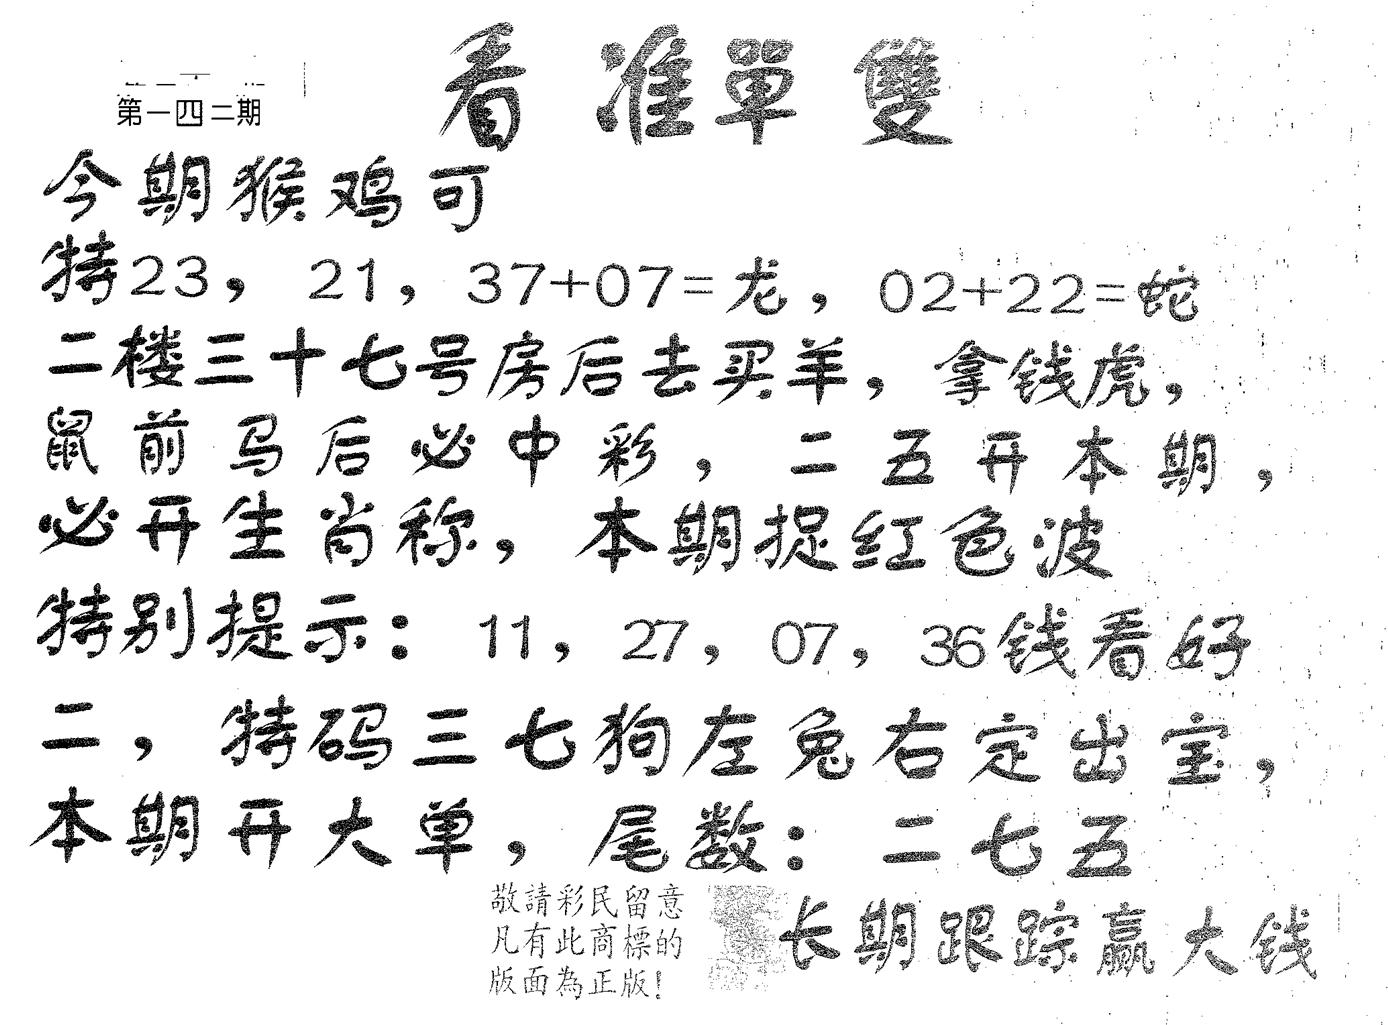 看准單雙
第一四二期
今期猴鸡可
特23，21，37+07=龙，02+22=蛇
二楼三十七号房后去买羊，拿钱虎，
鼠前马后必中彩，二五开本期，
必开生肖称，本期捉红色波
特别提示：11，27，07，36钱看好
二，特码三七狗左兔右定出宝，
本期开大单，尾数：二七五
敬請彩民留意
凡有此商標的
版面為正版！
长期跟踪赢大钱